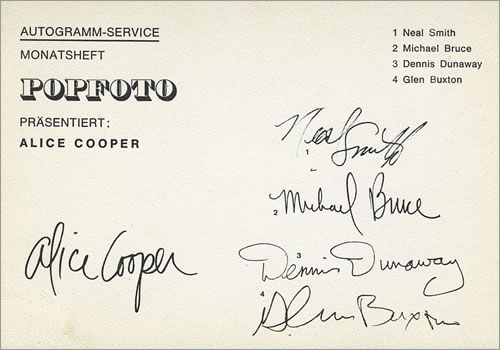 AUTOGRAMM-SERVICE
MONATSHEFT
POPFOTO
PRÄSENTIERT:
ALICE COOPER
1 Neal Smith
2 Michael Bruce
3 Dennis Dunaway
4 Glen Buxton
Neal Smith
1
2 Michael Bruce
Alice Cooper
3
Dennis Dunaway
4
Glen Buxton